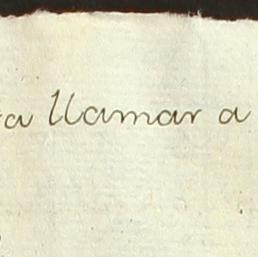 a llamar a